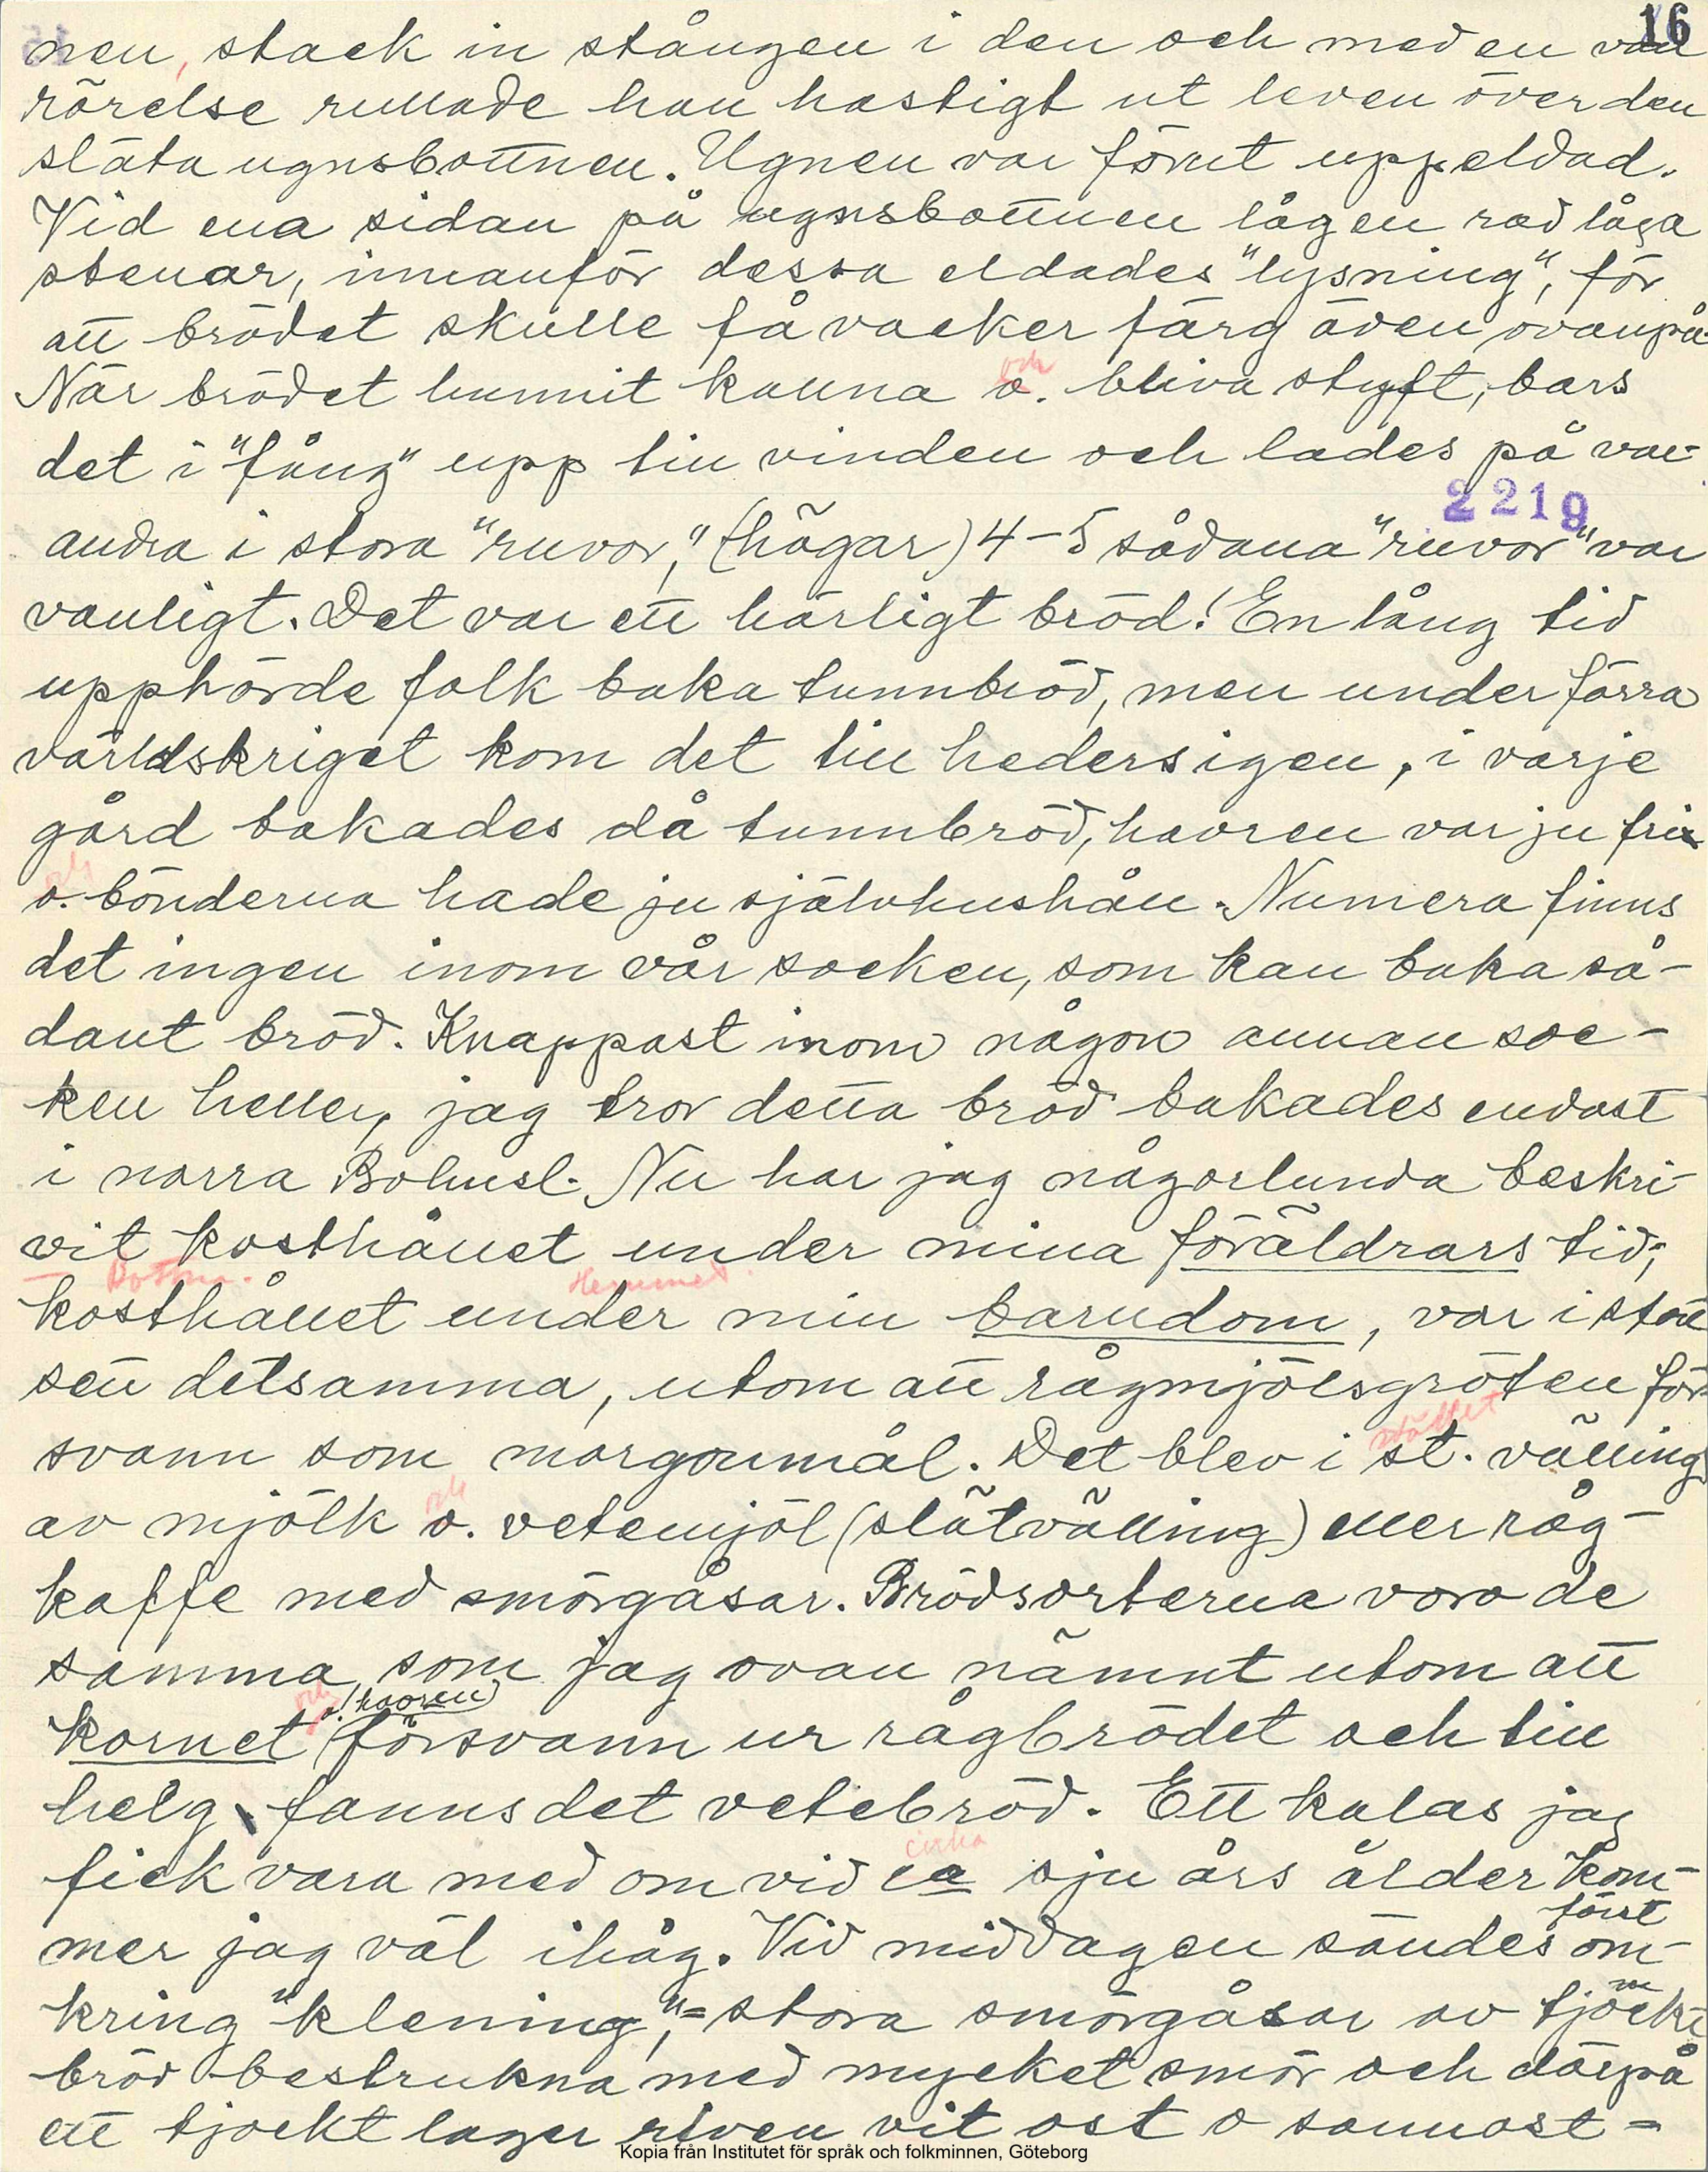 16
nen, stack in stången i den och med en van
rörelse rullade han hastigt ut leven över den
släta ugnsbottnen. Ugnen var förut uppeldad.
Vid ena sidan på ugnsbottnen låg en rad låga
stenar, innanför dessa eldades "lysning", för
att brödet skulle få vacker färg även ovanpå.
och
När brödet hunnit kallna o. bliva styft, bars
det i "fång" upp till vinden och lades på var-
2219
andra i stora "ruvor," (högar) 4-5 sådana "ruvor" var
vanligt. Det var ett härligt bröd! En lång tid
upphörde folk baka tunnbröd, men under förra
världskriget kom det till heders igen, i varje
gård bakades då tunnbröd, havren var ju fri
och
o. bönderna hade ju självhushåll. Numera finns
det ingen inom vår socken, som kan baka så-
dant bröd. Knappast inom någon annan soc-
ken heller, jag tror detta bröd bakades endast
i norra Bohusl. Nu har jag någorlunda beskri-
vit kosthållet under mina föräldrars tid;
Bottna. Hemmet.
kosthållet under min barndom, var i stort
sett detsamma, utom att rågmjölsgröten för-
stället
svann som morgonmål. Det blev i st. välling
och
av mjölk o. vetemjöl (slätvälling) eller råg-
kaffe med smörgåsar. Brödsorterna voro de
samma, som jag ovan nämnt utom att
och
o. (havren)
kornet försvann ur rågbrödet och till
helg fanns det vetebröd. Ett kalas jag
cirka
fick vara med om vid ca sju års ålder kom-
först
mer jag väl ihåg. Vid middagen sändes om-
kring "klening," = stora smörgåsar av tjock-
bröd bestrukna med mycket smör och därpå
ett tjockt lager riven vit ost o sannost =
Kopia från Institutet för språk och folkminnen, Göteborg